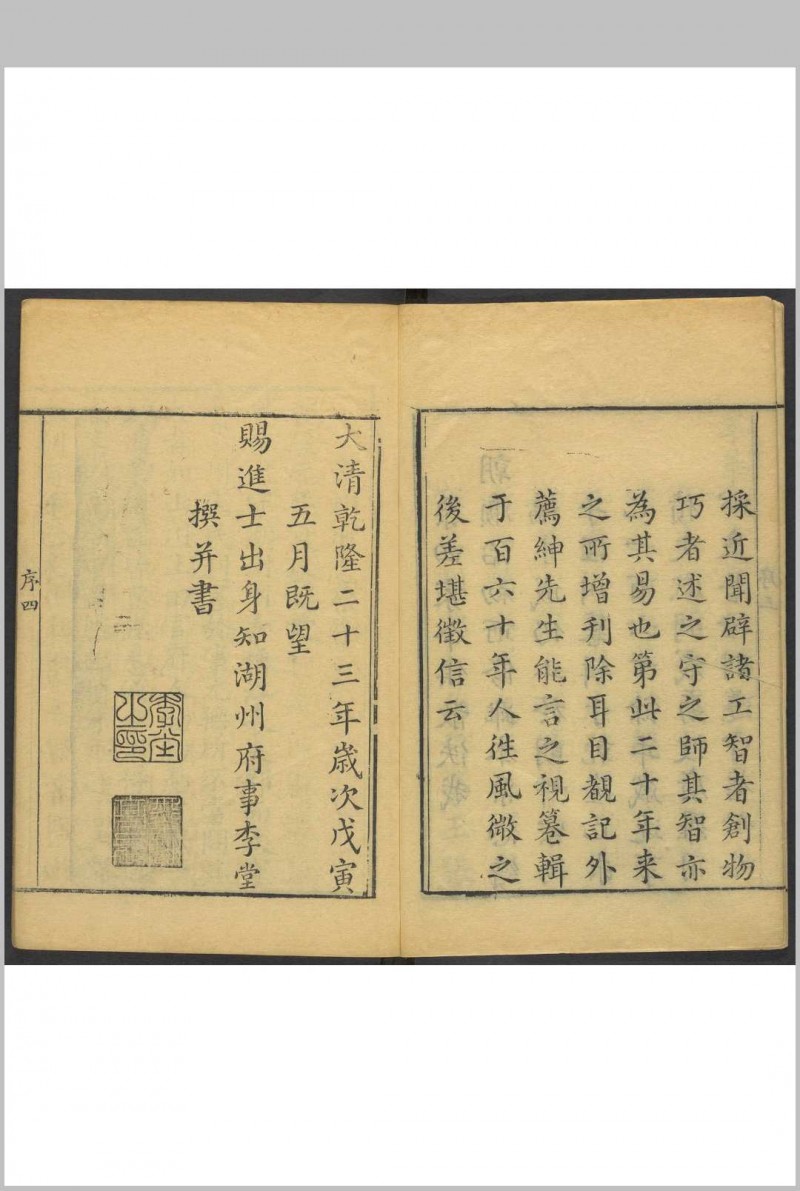 採近聞辟諸工智者創物
巧者述之守之師其智亦
為其易也第此二十年来
之所增刋除耳目覩記外
薦紳先生能言之視纂輯
于百六十年人徃風微之
後差堪徵信云
大清乾隆二十三年歲次戊寅
五月既望
賜進士出身知湖州府事李堂
撰并書
李堂之印
序四